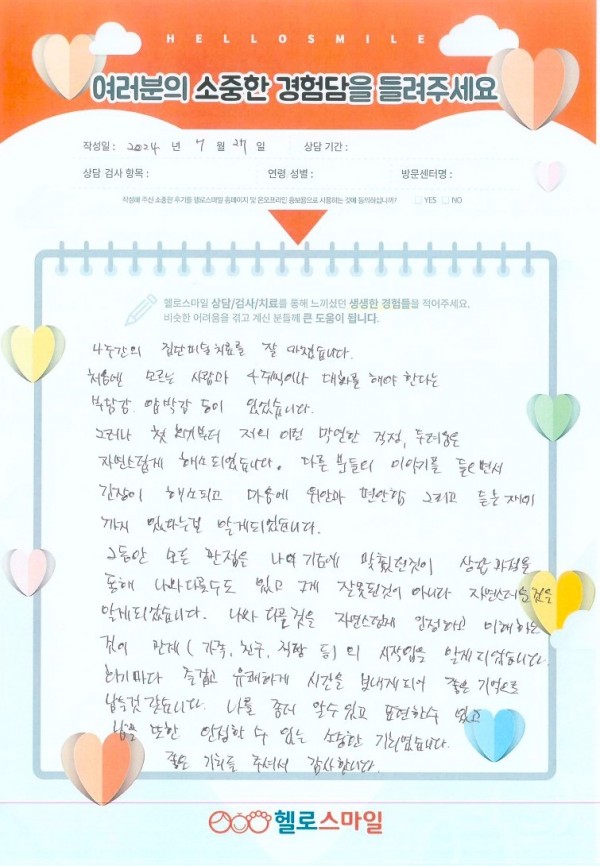 HELLOSMILE
여러분의 소중한 경험담을 들려주세요
작성일 : 2024 년 7 월 27 일 상담 기간 :
상담 검사 항목 : 연령 성별 : 방문센터명 :
작성해 주신 소중한 후기를 헬로스마일 홈페이지 및 온오프라인 홍보물으로 사용하는 것에 동의하십니까? YES NO
헬로스마일 상담/검사/치료를 통해 느끼셨던 생생한 경험들을 적어주세요.
비슷한 어려움을 겪고 계신 분들께 큰 도움이 됩니다.
4주간의 집단미술치료를 잘 마쳤습니다.
처음엔 모르는 사람과 4주씩이나 대화를 해야 한다는
부담감, 압박감 등이 있었습니다.
그러나 첫 회기부터 저의 이런 막연한 걱정, 두려움은
자연스럽게 해소되었습니다. 다른 분들의 이야기를 들으면서
긴장이 해소되고 마음에 위안과 편안함 그리고 듣는 재미
까지 있다는걸 알게되었습니다.
그동안 모든 관점은 나의 기준에 맞췄던것이 상담과정을
통해 나와 다를수도 있고 그게 잘못된것이 아니다 자연스러운것을
알게되었습니다. 나와 다른것을 자연스럽게 인정하고 이해하는
것이 관계( 가족, 친구, 직장 등) 의 시작임을 알게되었습니다.
회기마다 즐겁고 유쾌하게 시간을 보내게되어 좋은 기억으로
남을것 같습니다. 나를 좀더 알수있고 표현할수 있고
남을 또한 인정할 수 있는 소중한 기회였습니다.
좋은 기회를 주셔서 감사합니다.
헬로스마일